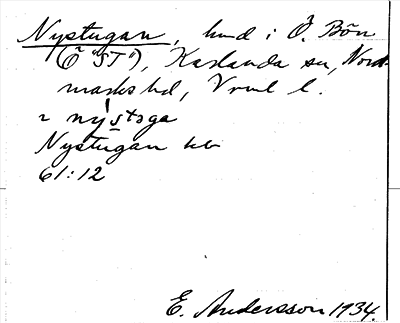 Nystugan, hmd i Ö. Bön
(Ö "ST"), Karlanda sn, Nord-
marks hd, Vrml l.
2 ny´stoga
Nystugan kb
61:12
E. Andersson 1934.